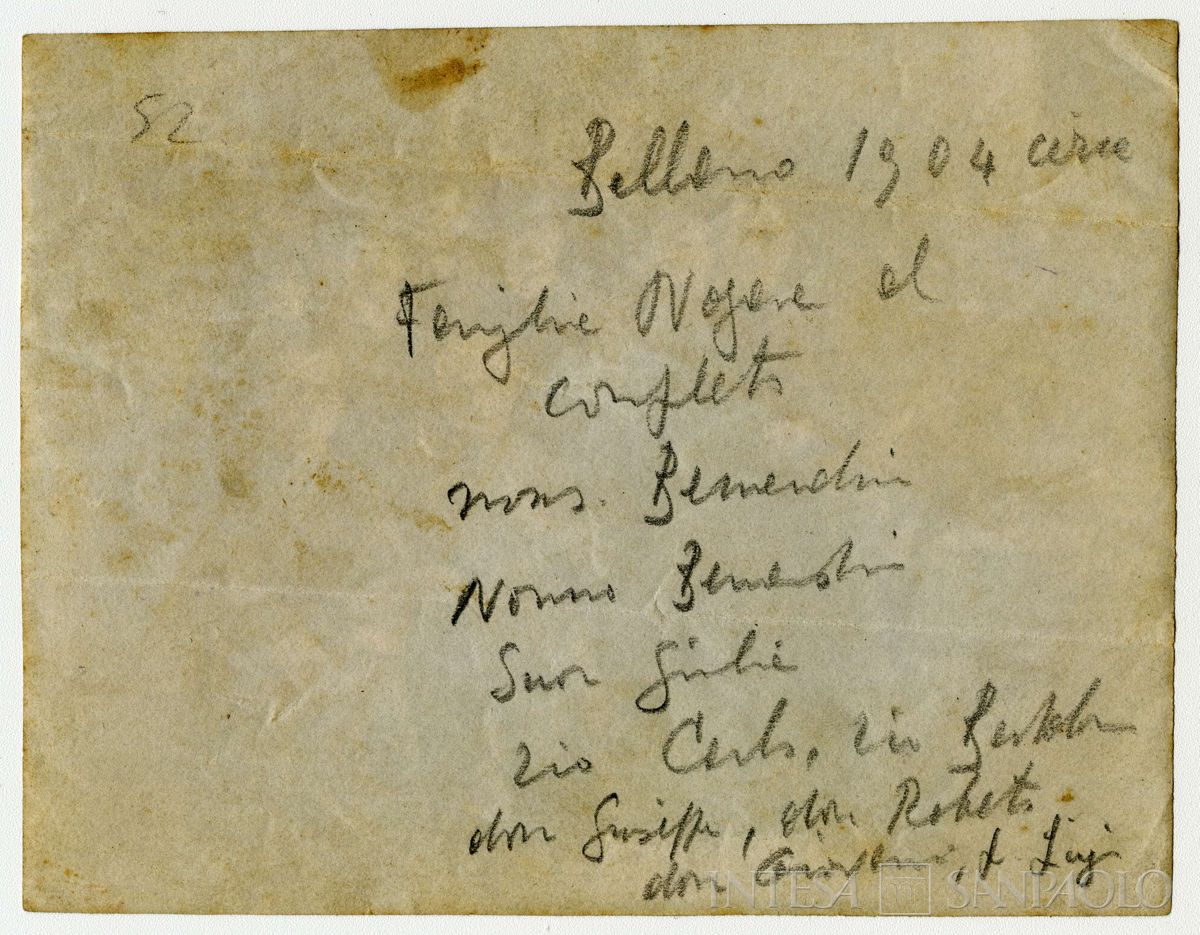 52
Bellano 1904 circa
Famiglia Nogara al
completo
mons. Bernardino
Nonno Bernardino
Suor Giulia
zio Carlo, zio Bartolomeo
don Giuseppe, don Roberto
don Giovanni, d Luigi
INTESA SANPAOLO